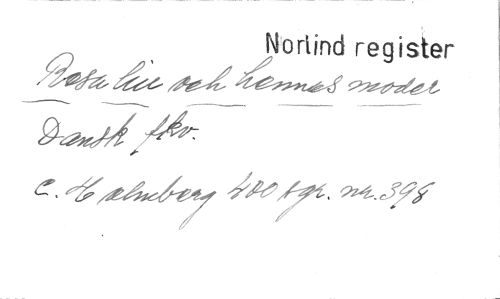 Norlind register
Rosalie och hennes moder
Dansk fkv.
C. Holmberg 400 sgr. nr. 398